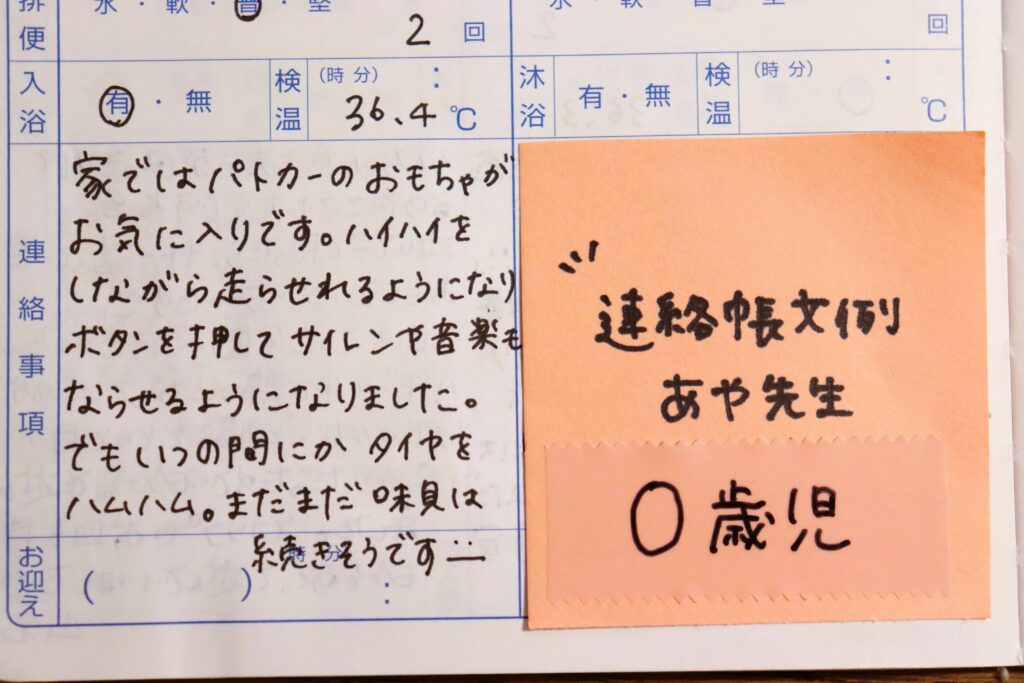 排便
水・軟・普・堅
2回
水・軟・普・堅
回
入浴
有・無
検温
(時分)
:
36.4℃
沐浴
有・無
検温
(時分)
:
℃
連絡事項
家ではパトカーのおもちゃが
お気に入りです。ハイハイを
しながら走らせれるようになり
ボタンを押してサイレンや音楽も
ならせるようになりました。
でもいつの間にかタイヤを
ハムハム。まだまだ味見は
続きそうです
お迎え
( )
時 分
:
連絡帳文例
あや先生
0歳児